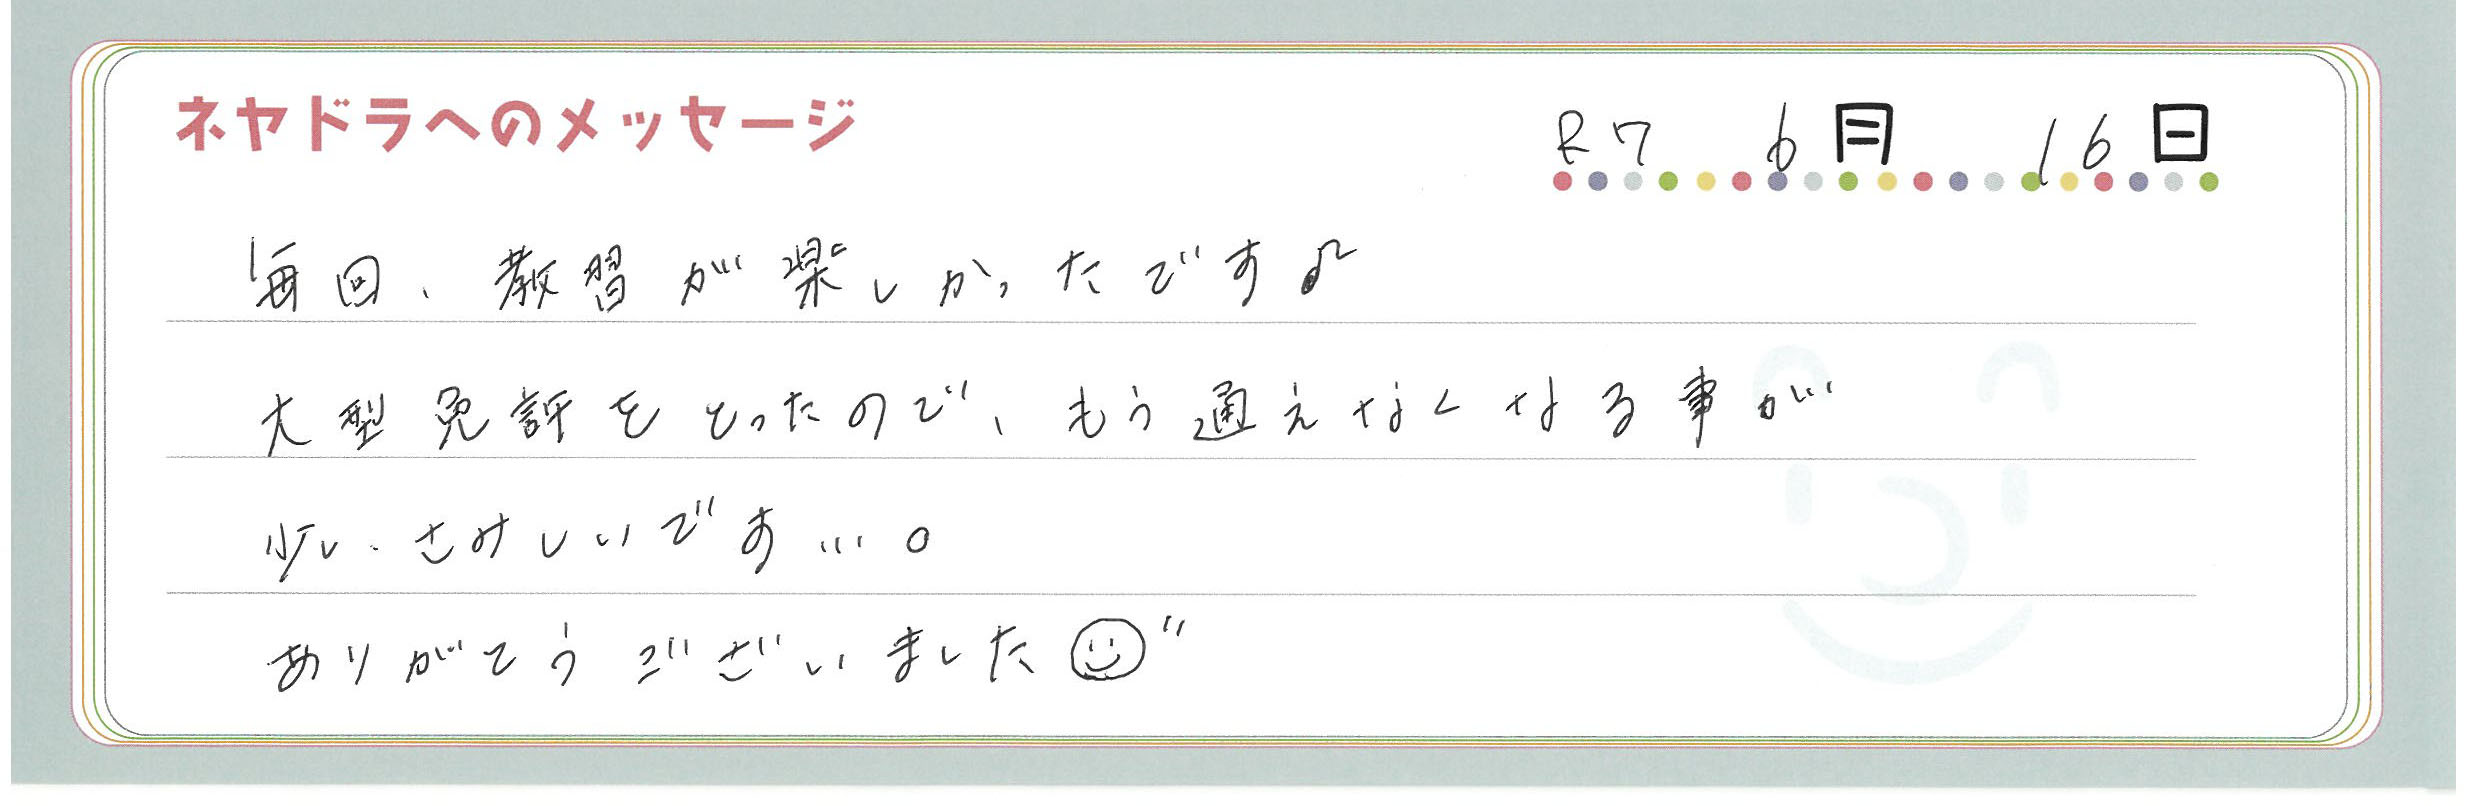 ネヤドラへのメッセージ
R7 6月 16日
毎回、教習が楽しかったです♪
大型免許をとったので、もう通えなくなる事が
少し、さみしいです…。
ありがとうございました☺"